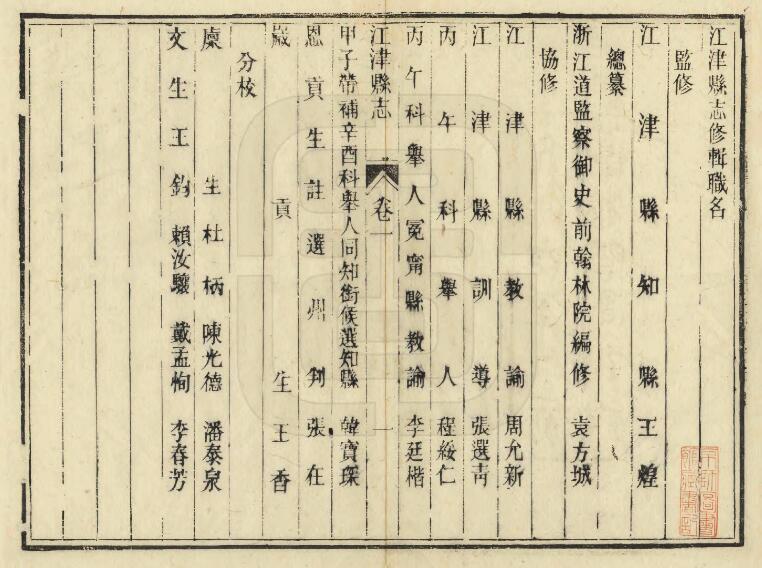 江津縣志修輯職名
監修
江津縣知縣王煌
總纂
浙江道監察御史前翰林院編修 袁方城
協修
江津縣教諭周允新
江津縣訓導張選青
丙午科舉人程綬仁
丙午科舉人冕甯縣教諭李廷楷
江津縣志 卷一 一
甲子帶補辛酉科舉人同知銜候選知縣 韓寶琛
恩貢生註選州判張在
歲貢生王香
分校
廩生杜柄 陳光德 潘泰泉
文生王鈞 賴汝驤 戴孟恂 李春芳